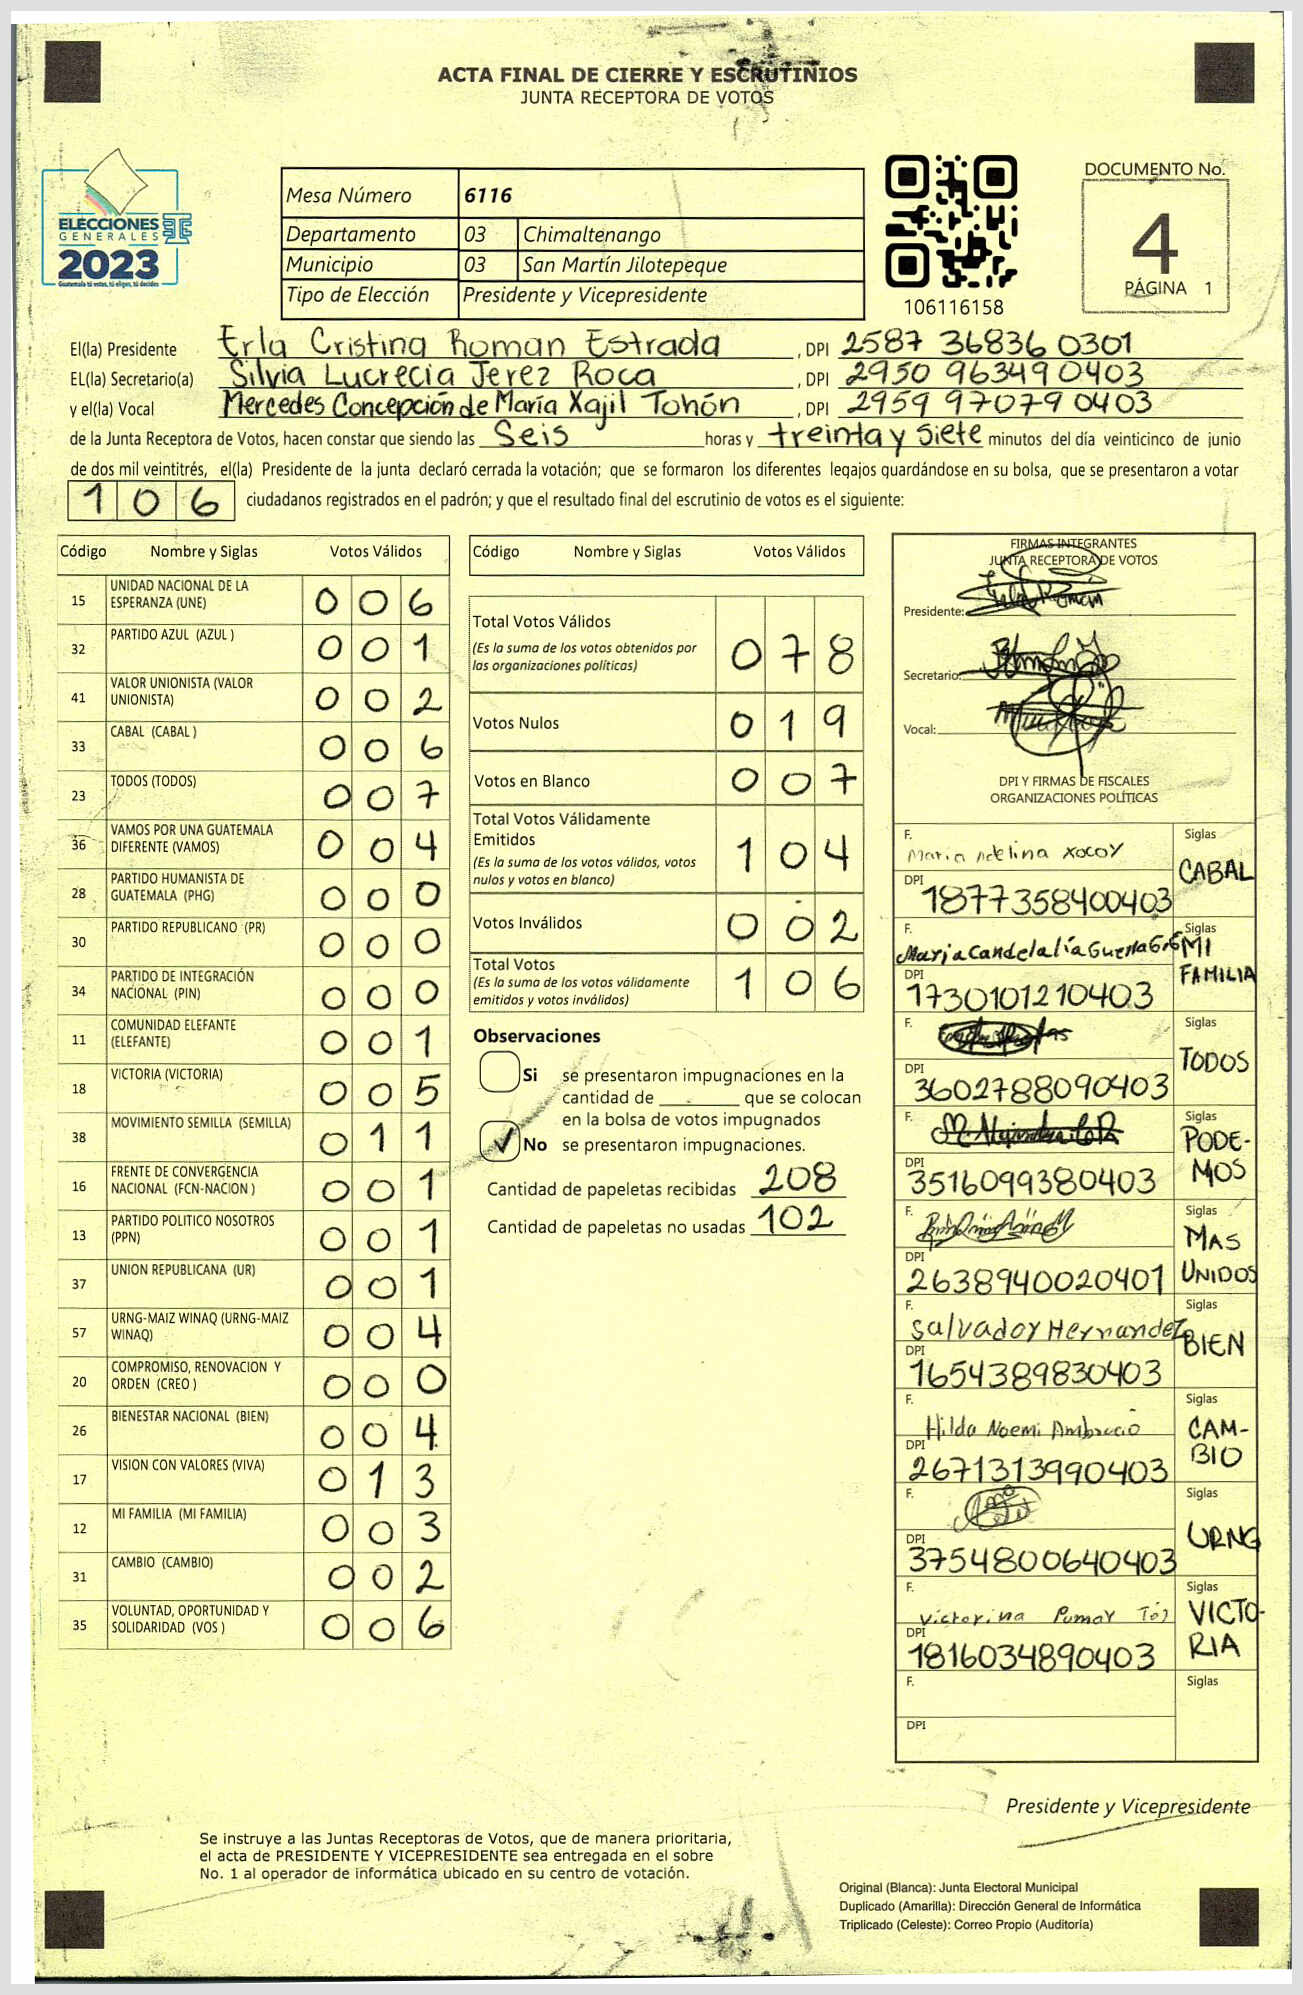 ACTA FINAL DE CIERRE Y ESCRUTINIOS
JUNTA RECEPTORA DE VOTOS
ELECCIONES
GENERALES
2023
Guatemala tú votas, tú eliges, tú decides
Mesa Número 6116
Departamento 03 Chimaltenango
Municipio 03 San Martín Jilotepeque
Tipo de Elección Presidente y Vicepresidente
106116158
DOCUMENTO No.
4
PÁGINA 1
El(la) Presidente Erla Cristina Roman Estrada , DPI 2587 36836 0301
EL(la) Secretario(a) Silvia Lucrecia Jerez Roca , DPI 2950 96349 0403
y el(la) Vocal Mercedes Concepción de María Xajil Tohón , DPI 2959 97079 0403
de la Junta Receptora de Votos, hacen constar que siendo las Seis horas y treinta y siete minutos del día veinticinco de junio
de dos mil veintitrés, el(la) Presidente de la junta declaró cerrada la votación; que se formaron los diferentes legajos guardándose en su bolsa, que se presentaron a votar
106 ciudadanos registrados en el padrón; y que el resultado final del escrutinio de votos es el siguiente:
Código Nombre y Siglas Votos Válidos
15 UNIDAD NACIONAL DE LA ESPERANZA (UNE) 006
32 PARTIDO AZUL (AZUL ) 001
41 VALOR UNIONISTA (VALOR UNIONISTA) 002
33 CABAL (CABAL ) 006
23 TODOS (TODOS) 007
36 VAMOS POR UNA GUATEMALA DIFERENTE (VAMOS) 004
28 PARTIDO HUMANISTA DE GUATEMALA (PHG) 000
30 PARTIDO REPUBLICANO (PR) 000
34 PARTIDO DE INTEGRACIÓN NACIONAL (PIN) 000
11 COMUNIDAD ELEFANTE (ELEFANTE) 001
18 VICTORIA (VICTORIA) 005
38 MOVIMIENTO SEMILLA (SEMILLA) 011
16 FRENTE DE CONVERGENCIA NACIONAL (FCN-NACION ) 001
13 PARTIDO POLITICO NOSOTROS (PPN) 001
37 UNION REPUBLICANA (UR) 001
57 URNG-MAIZ WINAQ (URNG-MAIZ WINAQ) 004
20 COMPROMISO, RENOVACION Y ORDEN (CREO ) 000
26 BIENESTAR NACIONAL (BIEN) 004
17 VISION CON VALORES (VIVA) 013
12 MI FAMILIA (MI FAMILIA) 003
31 CAMBIO (CAMBIO) 002
35 VOLUNTAD, OPORTUNIDAD Y SOLIDARIDAD (VOS ) 006
Código Nombre y Siglas Votos Válidos
Total Votos Válidos 078
(Es la suma de los votos obtenidos por
las organizaciones políticas)
Votos Nulos 019
Votos en Blanco 007
Total Votos Válidamente
Emitidos 104
(Es la suma de los votos válidos, votos
nulos y votos en blanco)
Votos Inválidos 002
Total Votos 106
(Es la suma de los votos válidamente
emitidos y votos inválidos)
Observaciones
Si se presentaron impugnaciones en la
cantidad de que se colocan
en la bolsa de votos impugnados
No se presentaron impugnaciones.
Cantidad de papeletas recibidas 208
Cantidad de papeletas no usadas 102
FIRMAS INTEGRANTES
JUNTA RECEPTORA DE VOTOS
Presidente:
Secretario:
Vocal:
DPI Y FIRMAS DE FISCALES
ORGANIZACIONES POLÍTICAS
F. Maria Adelina Xocoy Siglas CABAL
DPI 1877358400403
F. Maria Candelalía Guerra Siglas MI FAMILIA
DPI 1730101210403
F. Siglas TODOS
DPI 3602788090403
F. Siglas PODE-MOS
DPI 3516099380403
F. Siglas MAS UNIDOS
DPI 2638940020401
F. Salvador Hernandez Siglas BIEN
DPI 1654389830403
F. Hilda Noemi Ambrocio Siglas CAM-BIO
DPI 2671313990403
F. Siglas URNG
DPI 3754800640403
F. Victorina Siglas VICTO-RIA
DPI 1816034890403
F. Siglas
DPI
Presidente y Vicepresidente
Se instruye a las Juntas Receptoras de Votos, que de manera prioritaria,
el acta de PRESIDENTE Y VICEPRESIDENTE sea entregada en el sobre
No. 1 al operador de informática ubicado en su centro de votación.
Original (Blanca): Junta Electoral Municipal
Duplicado (Amarilla): Dirección General de Informática
Triplicado (Celeste): Correo Propio (Auditoría)